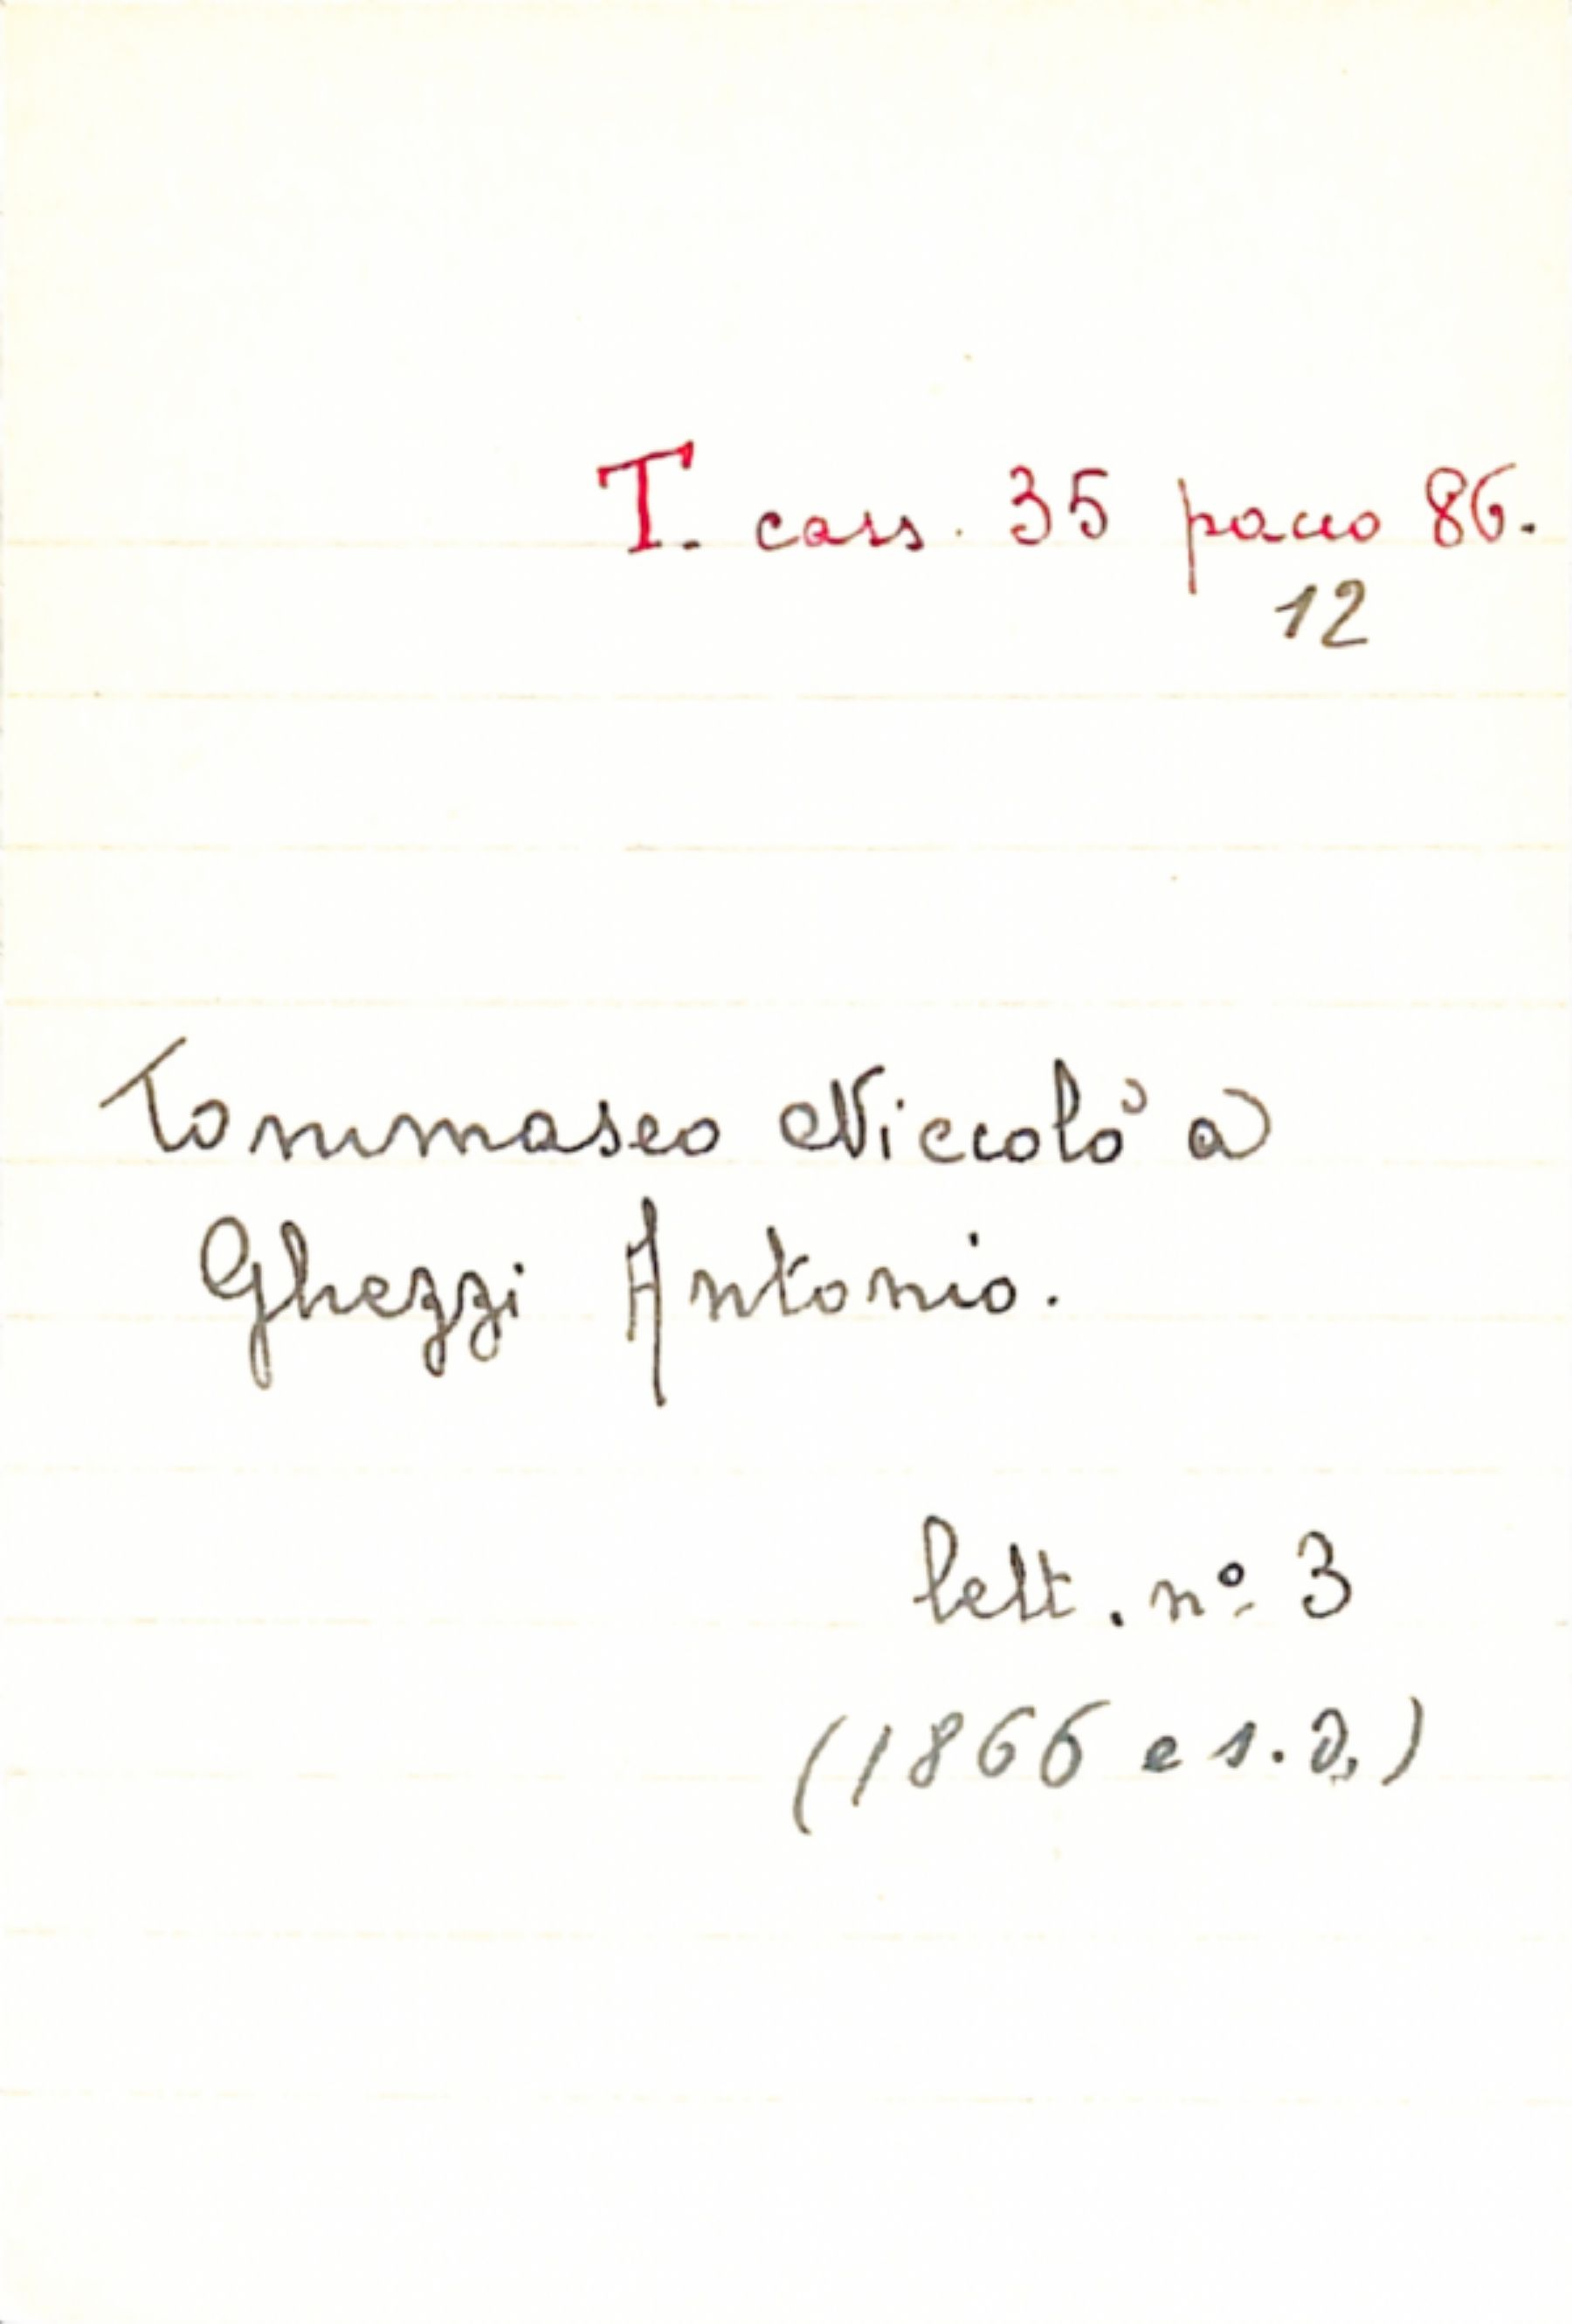 T. cass. 35 pacco 86.
12
Tommaseo Niccolò a
Ghezzi Antonio.
lett. nº 3
(1866 e s.d.)